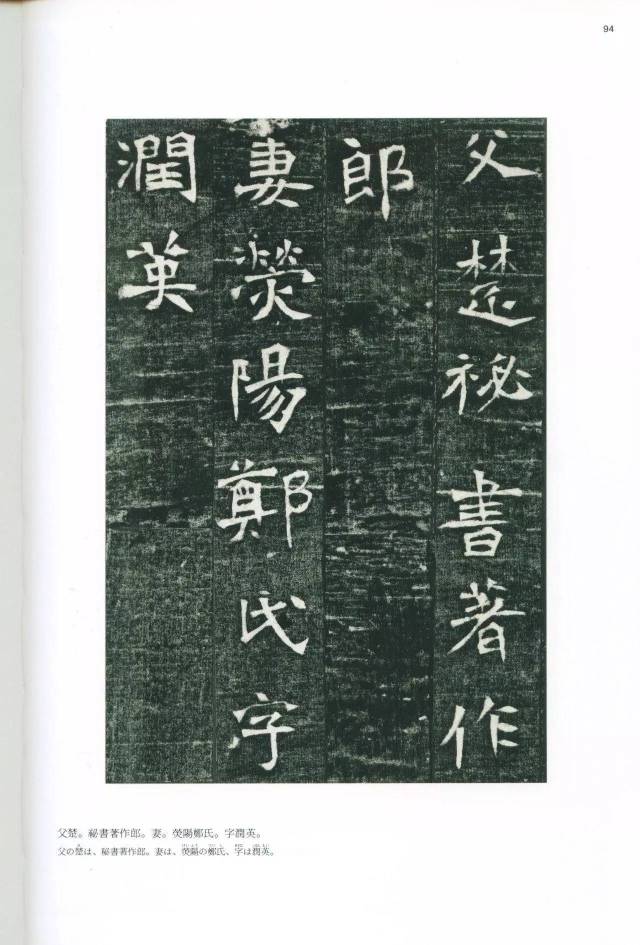 94
父楚祕書著作
郎
妻熒陽鄭氏字
潤英
父楚。祕書著作郎。妻。熒陽鄭氏。字潤英。
父の楚は、秘書著作郎。妻は、熒陽の鄭氏、字は潤英。